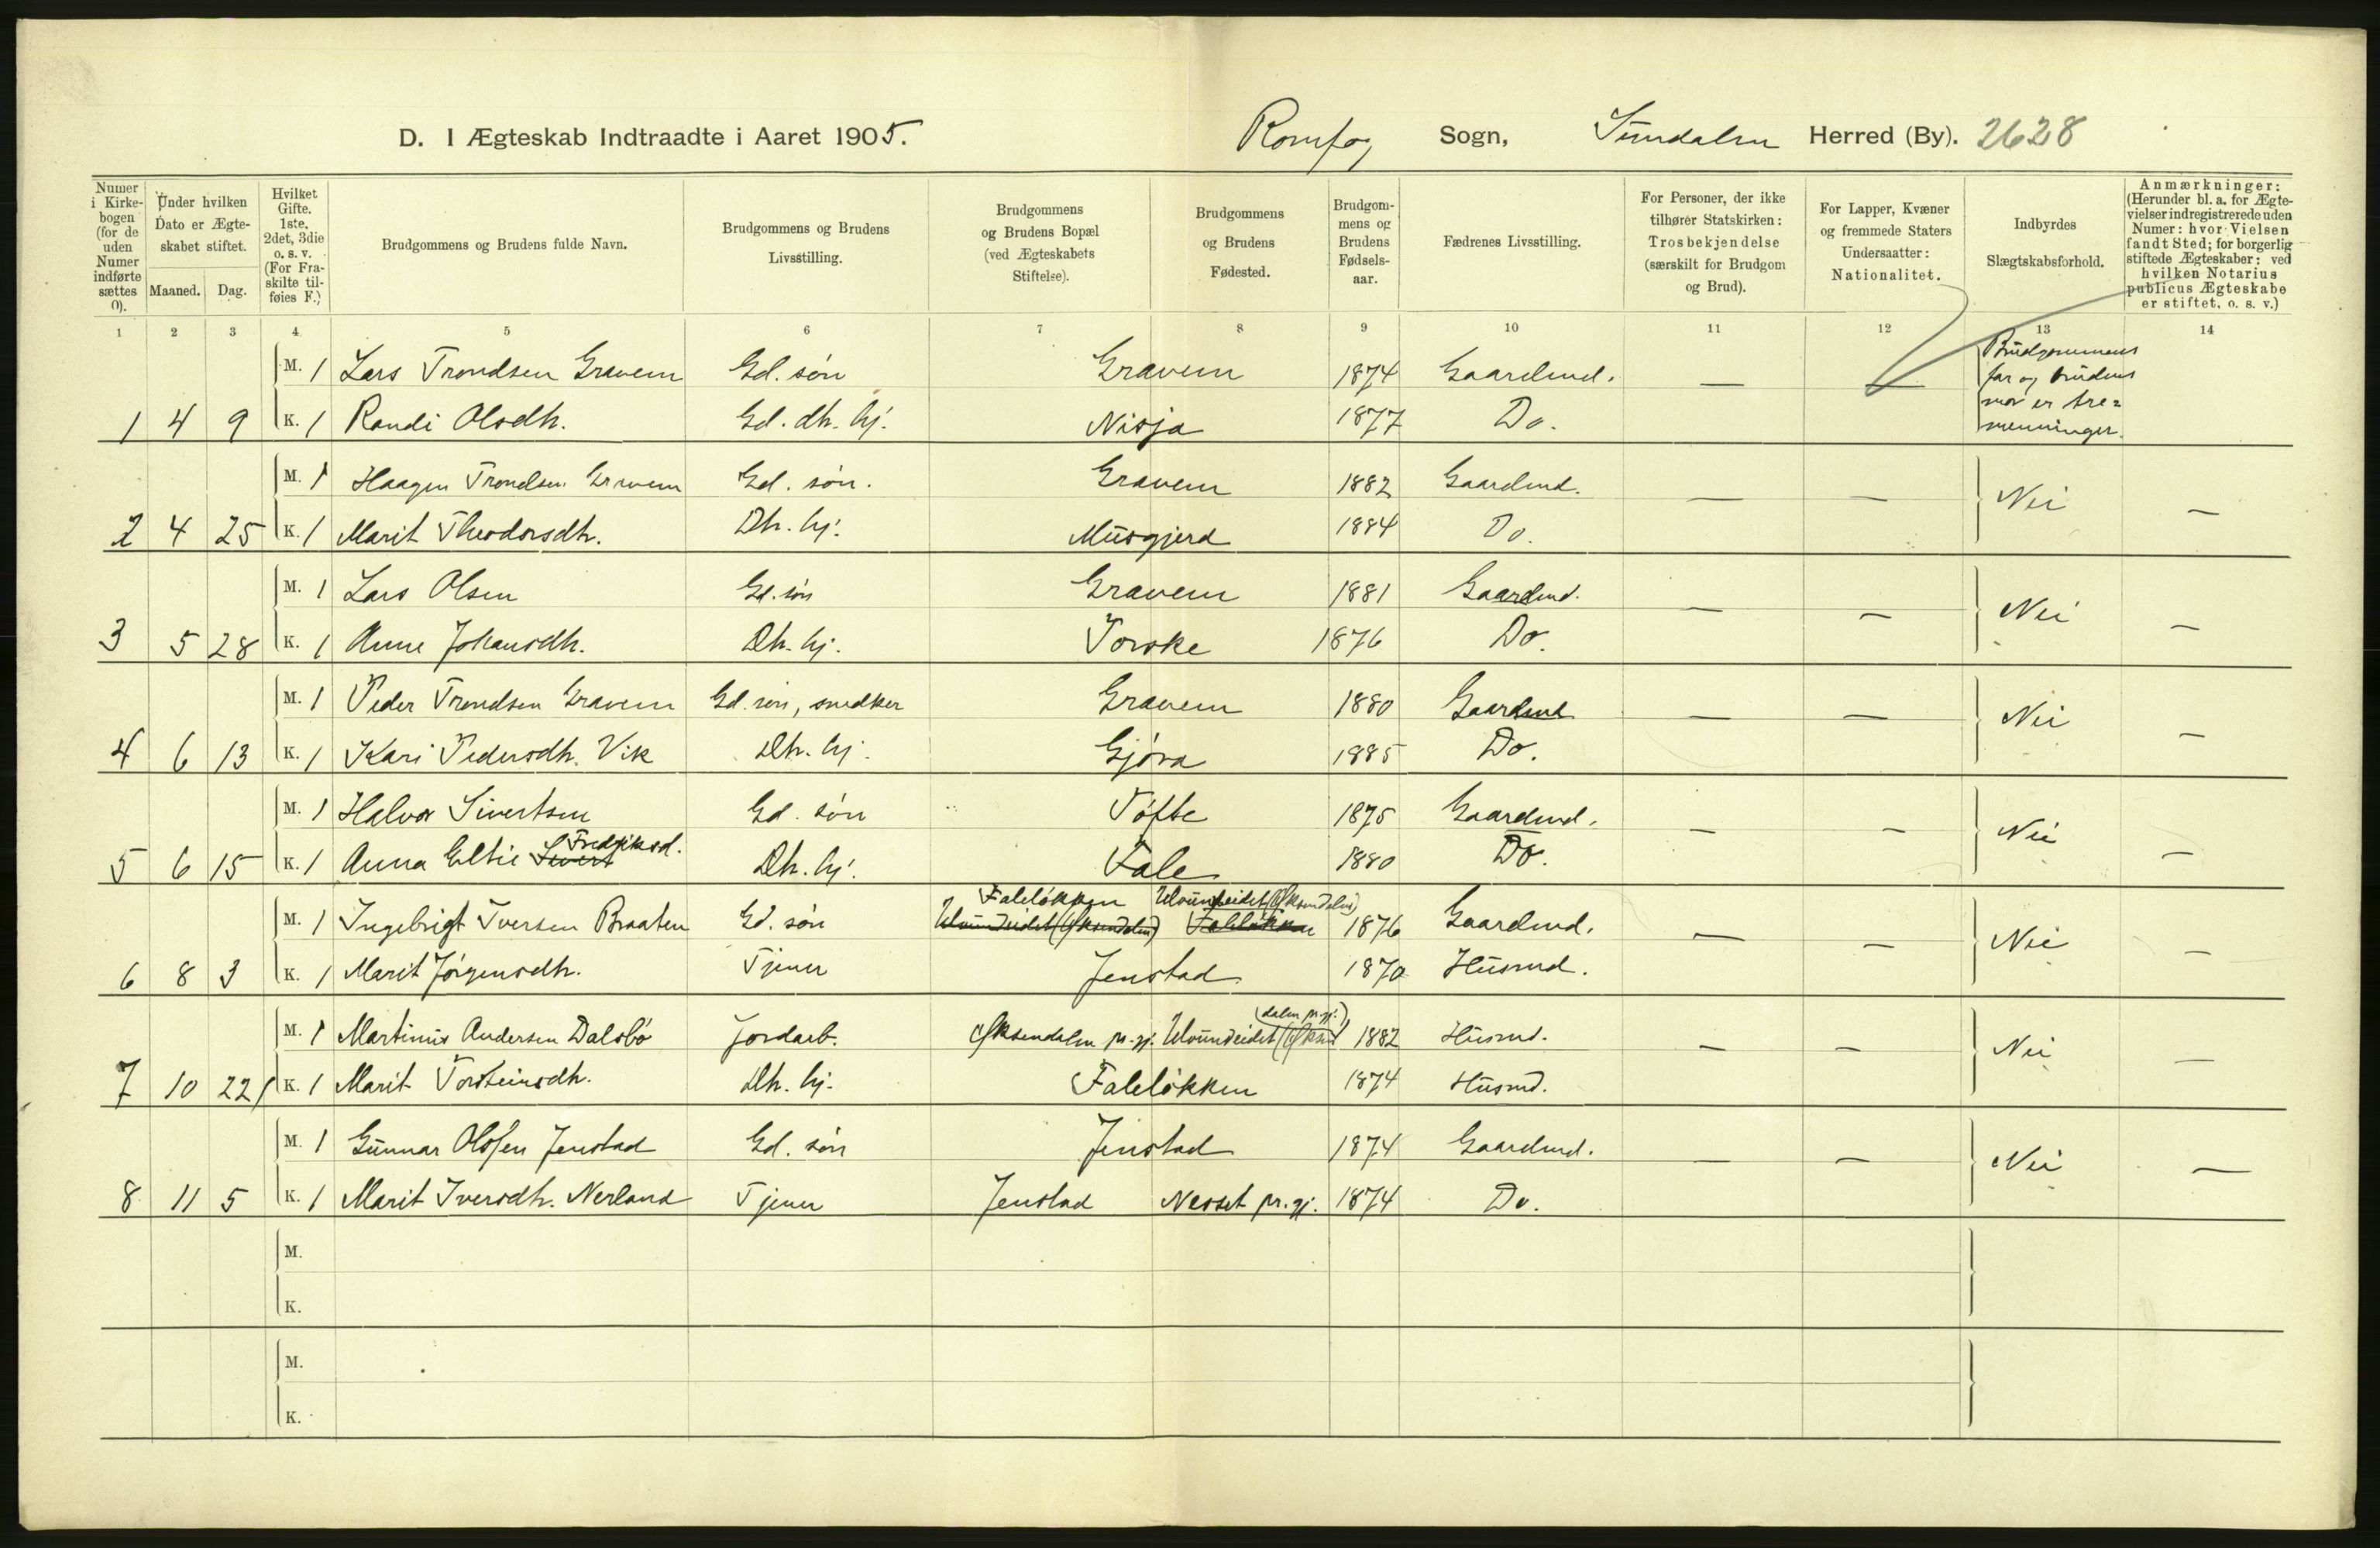 D. I Ægteskab Indtraadte i Aaret 1905. Romfog Sogn, Sundalen Herred (By). 2628
Numer i Kirkebogen (for de uden Numer indførte sættes 0).
Under hvilken Dato er Ægteskabet stiftet.
Maaned. Dag.
Hvilket Gifte. 1ste. 2det, 3die o. s. v. (For Fraskilte tilføies F.)
Brudgommens og Brudens fulde Navn.
Brudgommens og Brudens Livsstilling.
Brudgommens og Brudens Bopæl (ved Ægteskabets Stiftelse).
Brudgommens og Brudens Fødested.
Brudgommens og Brudens Fødselsaar.
Fædrenes Livsstilling.
For Personer, der ikke tilhører Statskirken: Trosbekjendelse (særskilt for Brudgom og Brud).
For Lapper, Kvæner og fremmede Staters Undersaatter: Nationalitet.
Indbyrdes Slægtskabsforhold.
Anmærkninger: (Herunder bl. a. for Ægtevielser indregistrerede uden Numer: hvor Vielsen fandt Sted; for borgerlig stiftede Ægteskaber: ved hvilken Notarius publicus Ægteskabe er stiftet, o. s. v.)
1 2 3 4 5 6 7 8 9 10 11 12 13 14
M. 1 Lars Trondsen Gravem Gd. søn Gravem 1874 Gaardmd. — — Brudgommens far og brudens mor er tremenninger.
1 4 9 K. 1 Randi Olsdtr. Gd. dtr. hj. Nisja 1877 Do.
M. 1 Haagen Trondsen Gravem Gd. søn. Gravem 1882 Gaardmd. — — Nei —
2 4 25 K. 1 Marit Theodorsdtr. Dtr. hj. Musgjerd 1884 Do.
M. 1 Lars Olsen Gd. søn Gravem 1881 Gaardmd. — — Nei —
3 5 28 K. 1 Anne Johansdtr. Dtr. hj. Torske 1876 Do.
M. 1 Peder Trondsen Gravem Gd. søn, snedker Gravem 1880 Gaardmd — — Nei —
4 6 13 K. 1 Kari Pedersdtr. Vik Dtr. hj. Gjøra 1885 Do.
M. 1 Halvor Sivertsen Gd. søn Tøfte 1875 Gaardmd. — — Nei —
5 6 15 K. 1 Anna Eltie Sivert Fredriksd. Dtr. hj. Fale 1880 Do.
Faleløkken Ulvundeidet (Øksendalen)
M. 1 Ingebrigt Iversen Braaten Gd. søn Ulvundeidet (Øksendalen) Faleløkken 1876 Gaardmd. — — Nei —
6 8 3 K. 1 Marit Jørgensdtr. Tjener Jenstad 1870 Husmd.
M. 1 Martinus Andersen Dalsbø Jordarb. Øksendalen pr.gj. Ulvundeidet (Øksendalen pr.gj.) 1882 Husmd. — — Nei —
7 10 22 K. 1 Marit Torsteinsdtr. Dtr. hj. Faleløkken 1874 Husmd.
M. 1 Gunnar Olsen Jenstad Gd. søn Jenstad 1874 Gaardmd. — — Nei —
8 11 5 K. 1 Marit Iversdtr. Nerland Tjener Jenstad Nesset pr.gj. 1874 Do.
M.
K.
M.
K.